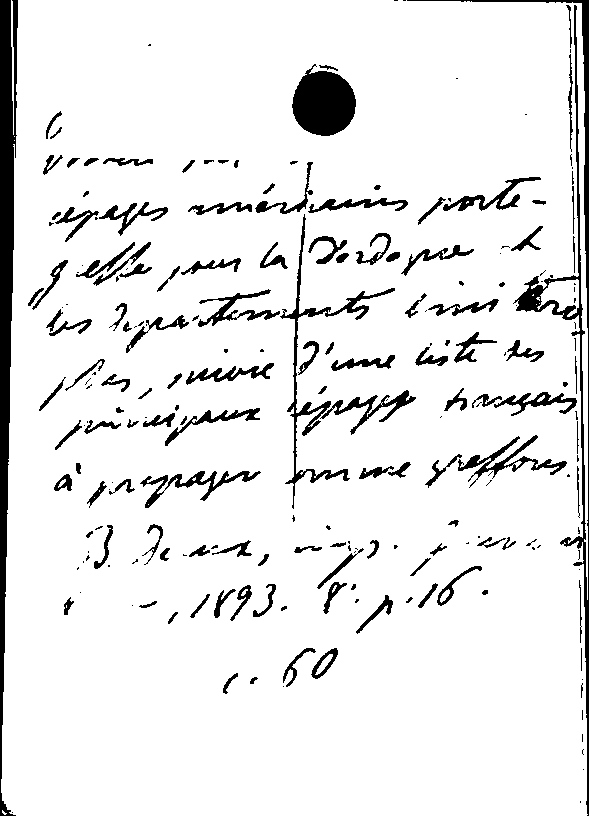 cépages américains porte-
greffe pour la Dordogne et
les départements limitro-
phes, suivie d'une liste des
principaux cépages français
à propager comme greffons.
imp.
, 1893. 8°. p. 16.
c. 60